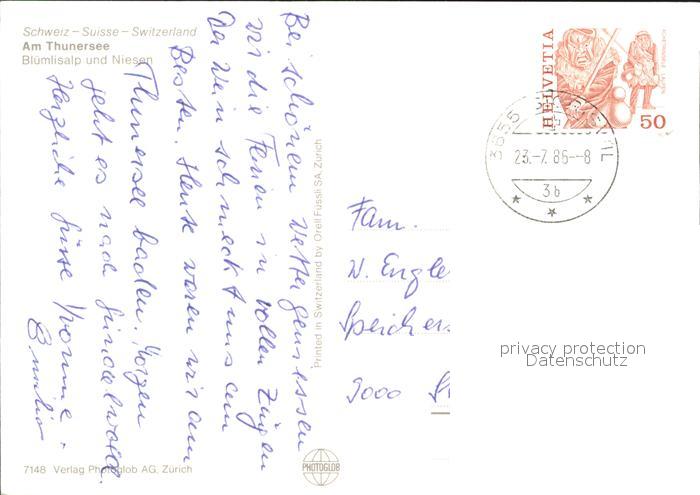 Schweiz – Suisse – Switzerland
Am Thunersee
Blümlisalp und Niesen
Bei schönem Wetter geniessen
wir die Ferien in vollen Zügen
Der Wein schmeckt uns am
Besten. Heute waren wir am
Thunersee baden. Morgen
geht es nach Grindelwald.
Herzliche Grüsse Yvonne +
7148 Verlag Photoglob AG, Zürich
Printed in Switzerland by Orell Füssli SA, Zürich
PHOTOGLOB
HELVETIA
50
3655
23.-7.86--8
3b
Fam.
W. Engle
Speichers
9000 St
privacy protection
Datenschutz